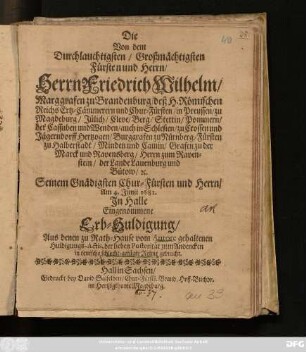 Die
Von dem
Durchlauchtigsten / Großmächtigsten
Fürsten und Herrn /
Herrn Friedrich Wilhelm /
Marggrafen zu Brandenburg / deß H. Römischen
Reichs Ertz-Cämmerern und Chur-Fürsten / in Preussen / zu
Magdeburg / Jülich / Cleve / Berg / Stettin / Pommern /
der Cassuben und Wenden / auch in Schlesien / zu Crossen und
Jägerndorff Hertzogen / Burggrafen zu Nürnberg / Fürsten
zu Halberstadt / Minden und Camin / Grafen zu der
Marck und Ravensberg / Herrn zum Raven-
stein / der Lande Lauenburg und
Bütow / ꝛc.
Seinem Gnädigsten Chur-Fürsten und Herrn /
Am 4. Junii 1681.
In Halle
Eingenommene
Erb-Huldigung /
Aus denen zu Rath-Hause vom gehaltenen
Huldigungs-Actis, der lieben Posterität zum Andencken
gebracht.
Hall in Sachsen /
Gedruckt bey David Salfelden / Chur-Fürstl. Brand. Hoff-Buchdr.
im Hertzogthum Magdeburg.